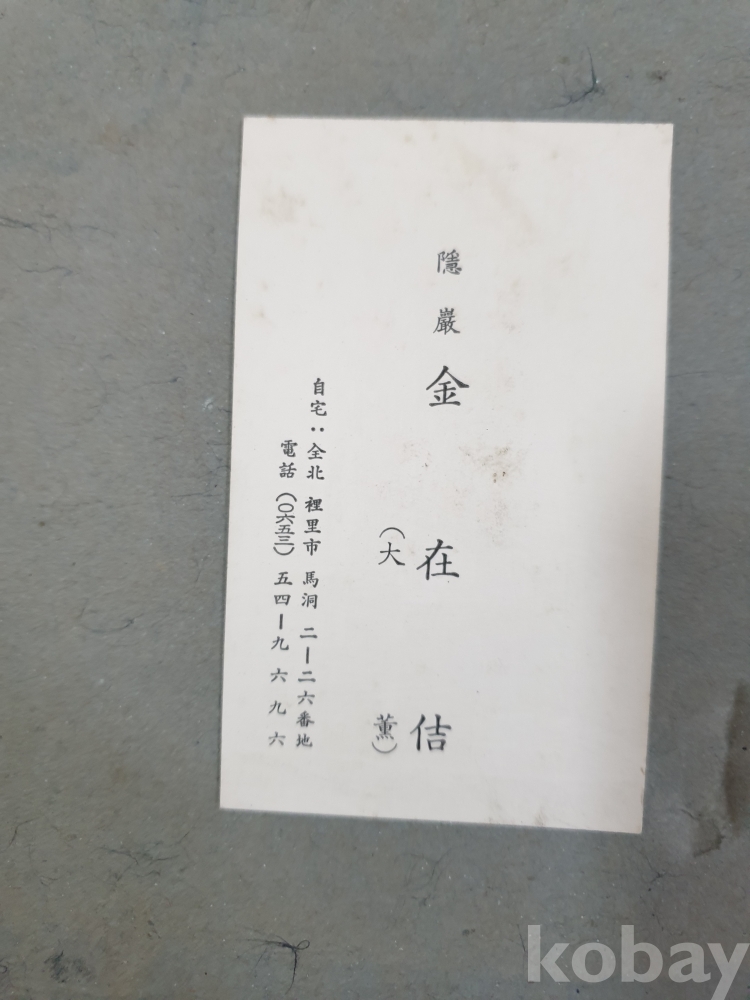 隱巖 金在佶
(大薰)
自宅:全北 裡里市 馬洞 二ー二六番地
電話 (〇六五三) 五四ー九六九六
kobay